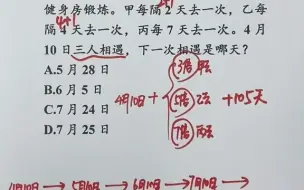 健身房锻炼。甲每隔2天去一次，乙每
4+1
隔4天去一次，丙每7天去一次。4月
10日三人相遇，下一次相遇是哪天？
A.5月28日
B.6月5日
C.7月24日
D.7月25日
4月10日+
3倍 甲
5倍 乙
7倍 丙
+105天
5月10日
6月10日
7月10日